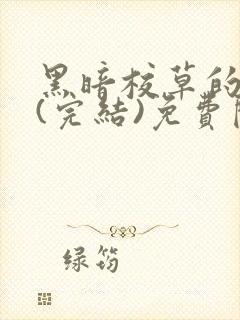 黑暗校草的
(完結)免費
绿筠